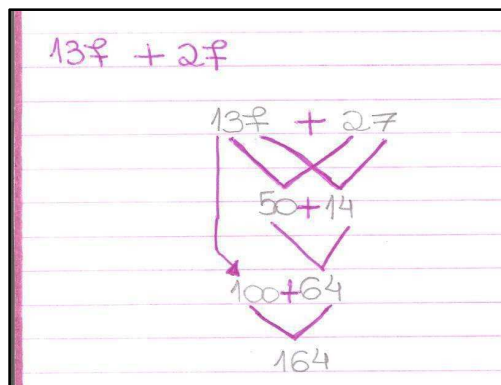 137 + 27
137 + 27
50+14
100+64
164